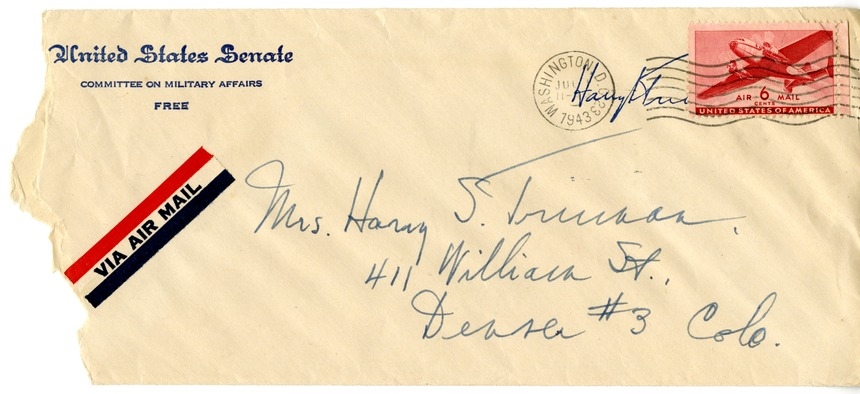 United States Senate
COMMITTEE ON MILITARY AFFAIRS
FREE
WASHINGTON, D.C.
1943
Harry S Tru
AIR 6 MAIL
CENTS
UNITED STATES OF AMERICA
VIA AIR MAIL
Mrs. Harry S. Truman.
411 William St.,
Denver #3 Colo.